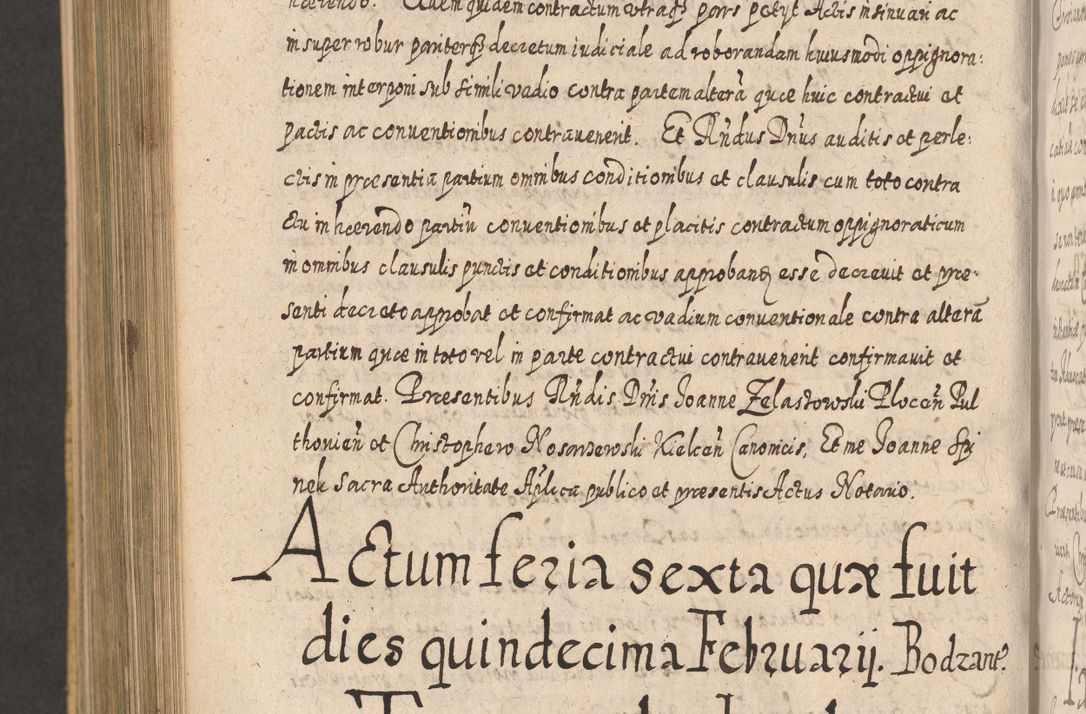 hærendo. Quem quidem contractum utraq3 pars petyt Actis insinuari ac
insuper robur pariterq3 decretum iudiciale ad roborandam huiusmodi oppignora:
tionem interponi sub simili vadio contra partem alterã quæ huic contractui et
pactis ac conuentionibus contrauenerit. Et Rñdus Dñus auditis et perle:
ctis in præsentia partium omnibus conditionibus et clausulis cum toto contra
ctu inhærendo partiũ conuentionibus et placitis contractum oppignoraticum
in omnibus clausulis punctis et conditionibus approbandũ esse decreuit et præ:
senti decreto approbat et confirmat ac vadium conuentionale contra alterã
partium quæ in toto vel in parte contractui contrauenerit confirmauit et
confirmat. Præsentibus Rñdis Dñis Joanne Zelastowski Plocen̄ Pul
thouien̄ et Christophero Nosarzewski Kielcen̄ Canonicis, Et me Joanne Spi
nek Sacra Authoritate Aplica publico et præsentis Actus Notario.
Actum feria sexta quæ fuit
dies quindecima Februarij. Bodzant?